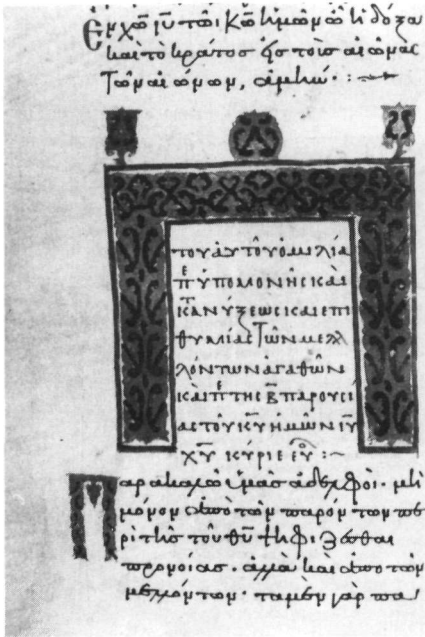 Ἐν χῶ ἰῦ τῶι κῶ ἡμῶν ὧ ἡ δόξα
καὶ τὸ κράτος εἰς τοὺς αἰῶνας
τῶν αἰώνων, ἀμήν :
τοῦ αὐτοῦ ὁμιλία
π ὑπομονῆς καὶ
κατανύξεως καὶ ἐπι
θυμίας τῶν μελ
λόντων ἀγαθῶν
καὶ π τῆς β παρουσί
ας τοῦ κυ ἡμῶν ιυ
χυ κύριε ευ :~
Παρακαλῶ ὑμᾶς ἀδελφοί· μὴ
μόνον ἀπὸ τῶν παρόντων πε
ρὶ τῆς τοῦ θυ
προνοίας· ἀλλὰ καὶ ἀπὸ τῶν
μελλόντων· τὰ μὲν γὰρ πα